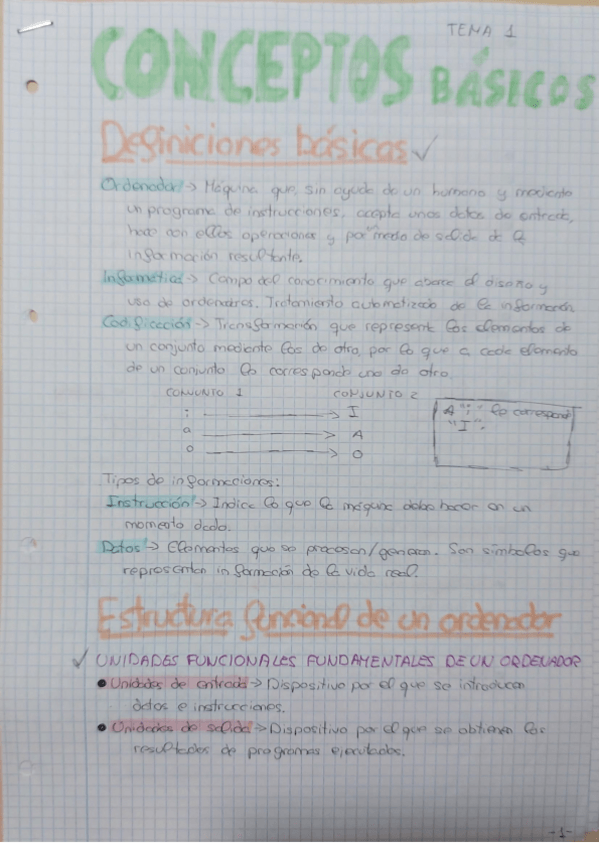 TEMA 1
CONCEPTOS BÁSICOS
Definiciones básicas ✓
Ordenador -> Máquina que, sin ayuda de un humano y mediante
un programa de instrucciones, acepta unos datos de entrada,
hace con ellos operaciones y por medio de salida da la
información resultante.
Informática -> Campo del conocimiento que abarca el diseño y
uso de ordenadores. Tratamiento automatizado de la información
Codificación -> Transformación que represent los elementos de
un conjunto mediante los de otro, por lo que a cada elemento
de un conjunto le corresponde uno de otro.
CONJUNTO 1 CONJUNTO 2
i -> I
a -> A
o -> O
A "i" le corresponde
"I".
Tipos de informaciones:
Instrucción -> Indica lo que la máquina debe hacer en un
momento dado.
Datos -> Elementos que se procesan/generan. Son símbolos que
representan información de la vida real.
Estructura funcional de un ordenador
✓ UNIDADES FUNCIONALES FUNDAMENTALES DE UN ORDENADOR
• Unidades de entrada -> Dispositivo por el que se introducen
datos e instrucciones.
• Unidades de salida -> Dispositivo por el que se obtienen los
resultados de programas ejecutados.
-1-